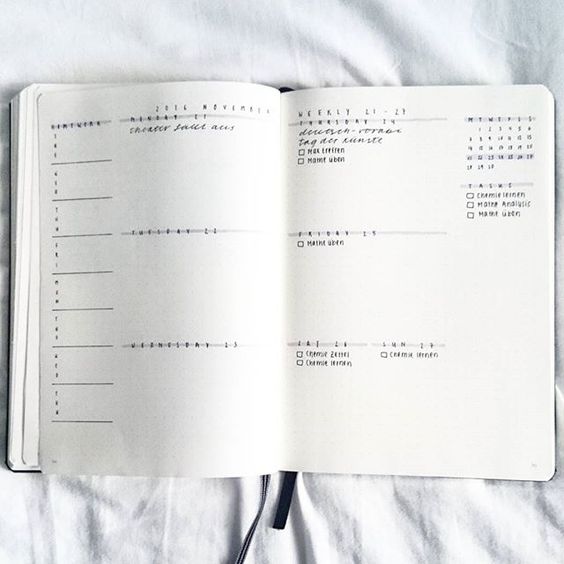 2016 NOVEMBER
HOMEWORK
TUE
WED
THU
FRI
MON
TUE
WED
THU
MONDAY 21
theater fällt aus
TUESDAY 22
WEDNESDAY 23
WEEKLY 21-27
THURSDAY 24
tag der künste
Max treffen
Mathe üben
FRIDAY 25
Mathe üben
SAT 26
Chemie Zettel
Chemie lernen
SUN 27
Chemie lernen
M T W T F S S
1 2 3 4 5 6
7 8 9 10 11 12 13
14 15 16 17 18 19 20
21 22 23 24 25 26 27
28 29 30
TASKS
Chemie lernen
Mathe Analysis
Mathe üben